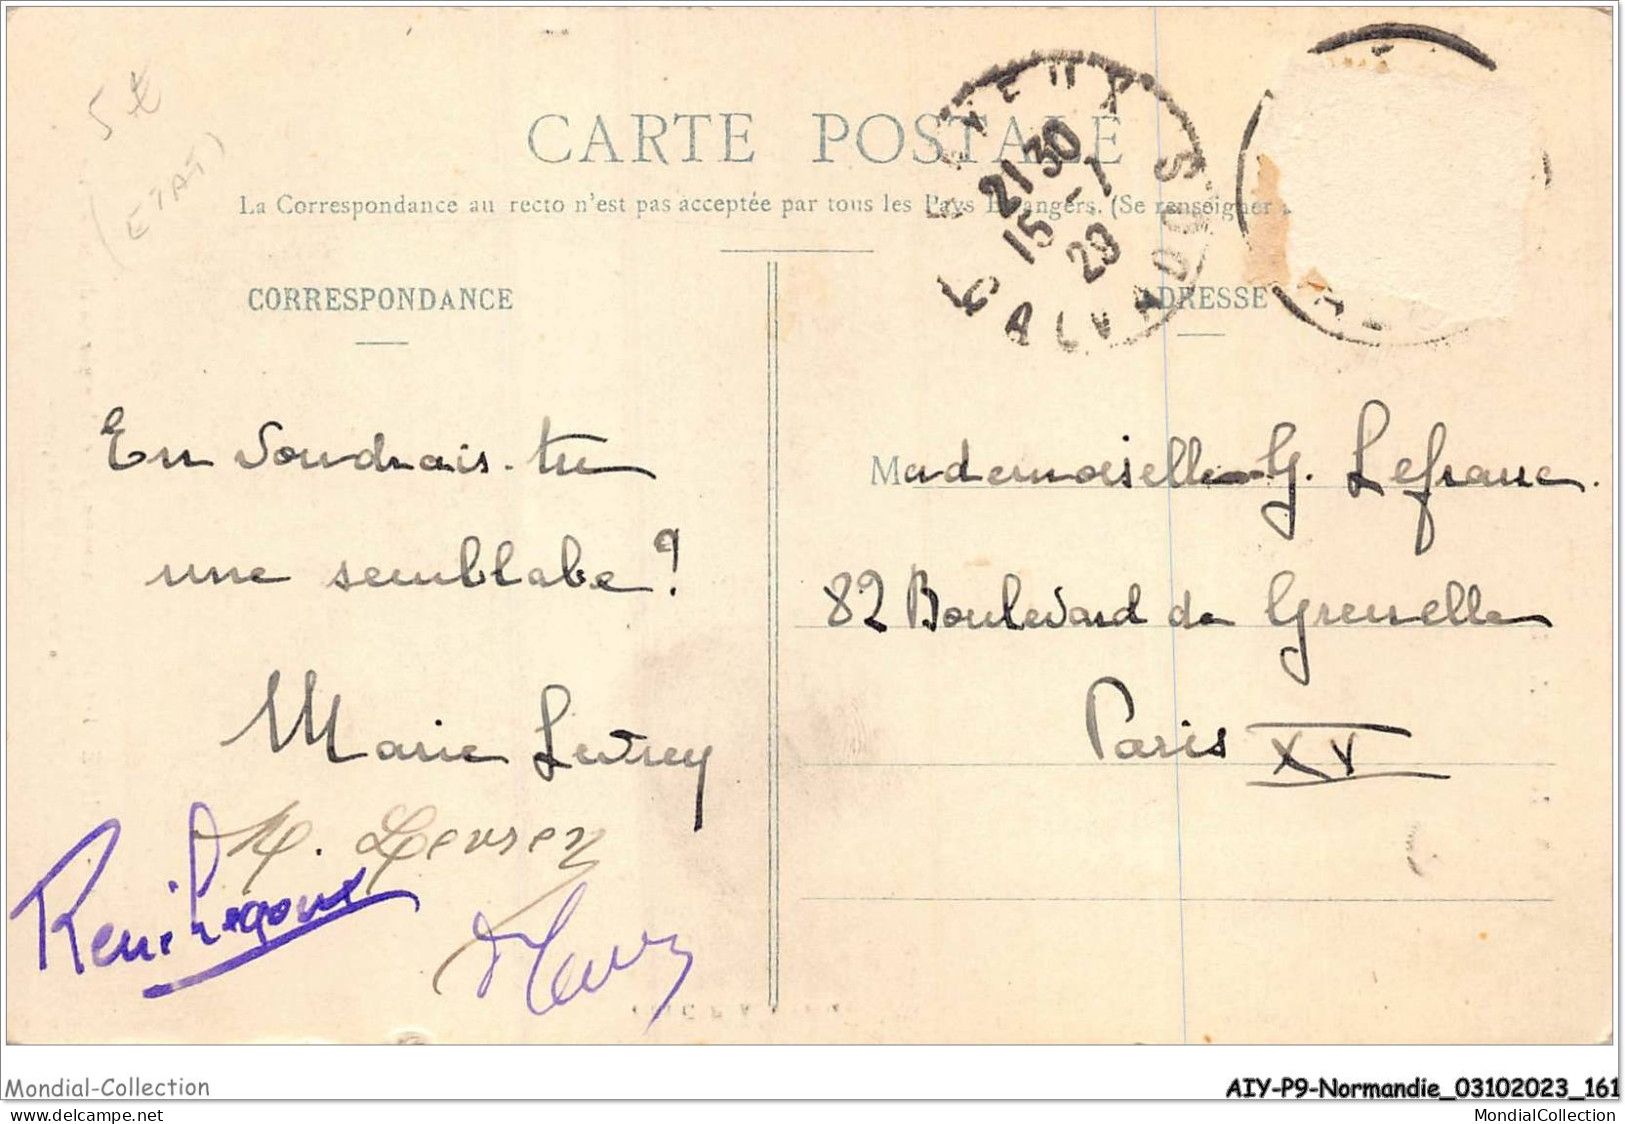 5 €
(ETAT)
CARTE POSTALE
La Correspondance au recto n'est pas acceptée par tous les Pays Etrangers. (Se renseigner
21 30
15 - 7
29
CALVADOS
CORRESPONDANCE
ADRESSE
En voudrais-tu
une semblabe ?
Marie Levrey
Mademoiselle G. Lefranc.
82 Boulevard de Grenelle
Paris XV
Mondial-Collection
AIY-P9-Normandie_03102023_161
www.delcampe.net
MondialCollection